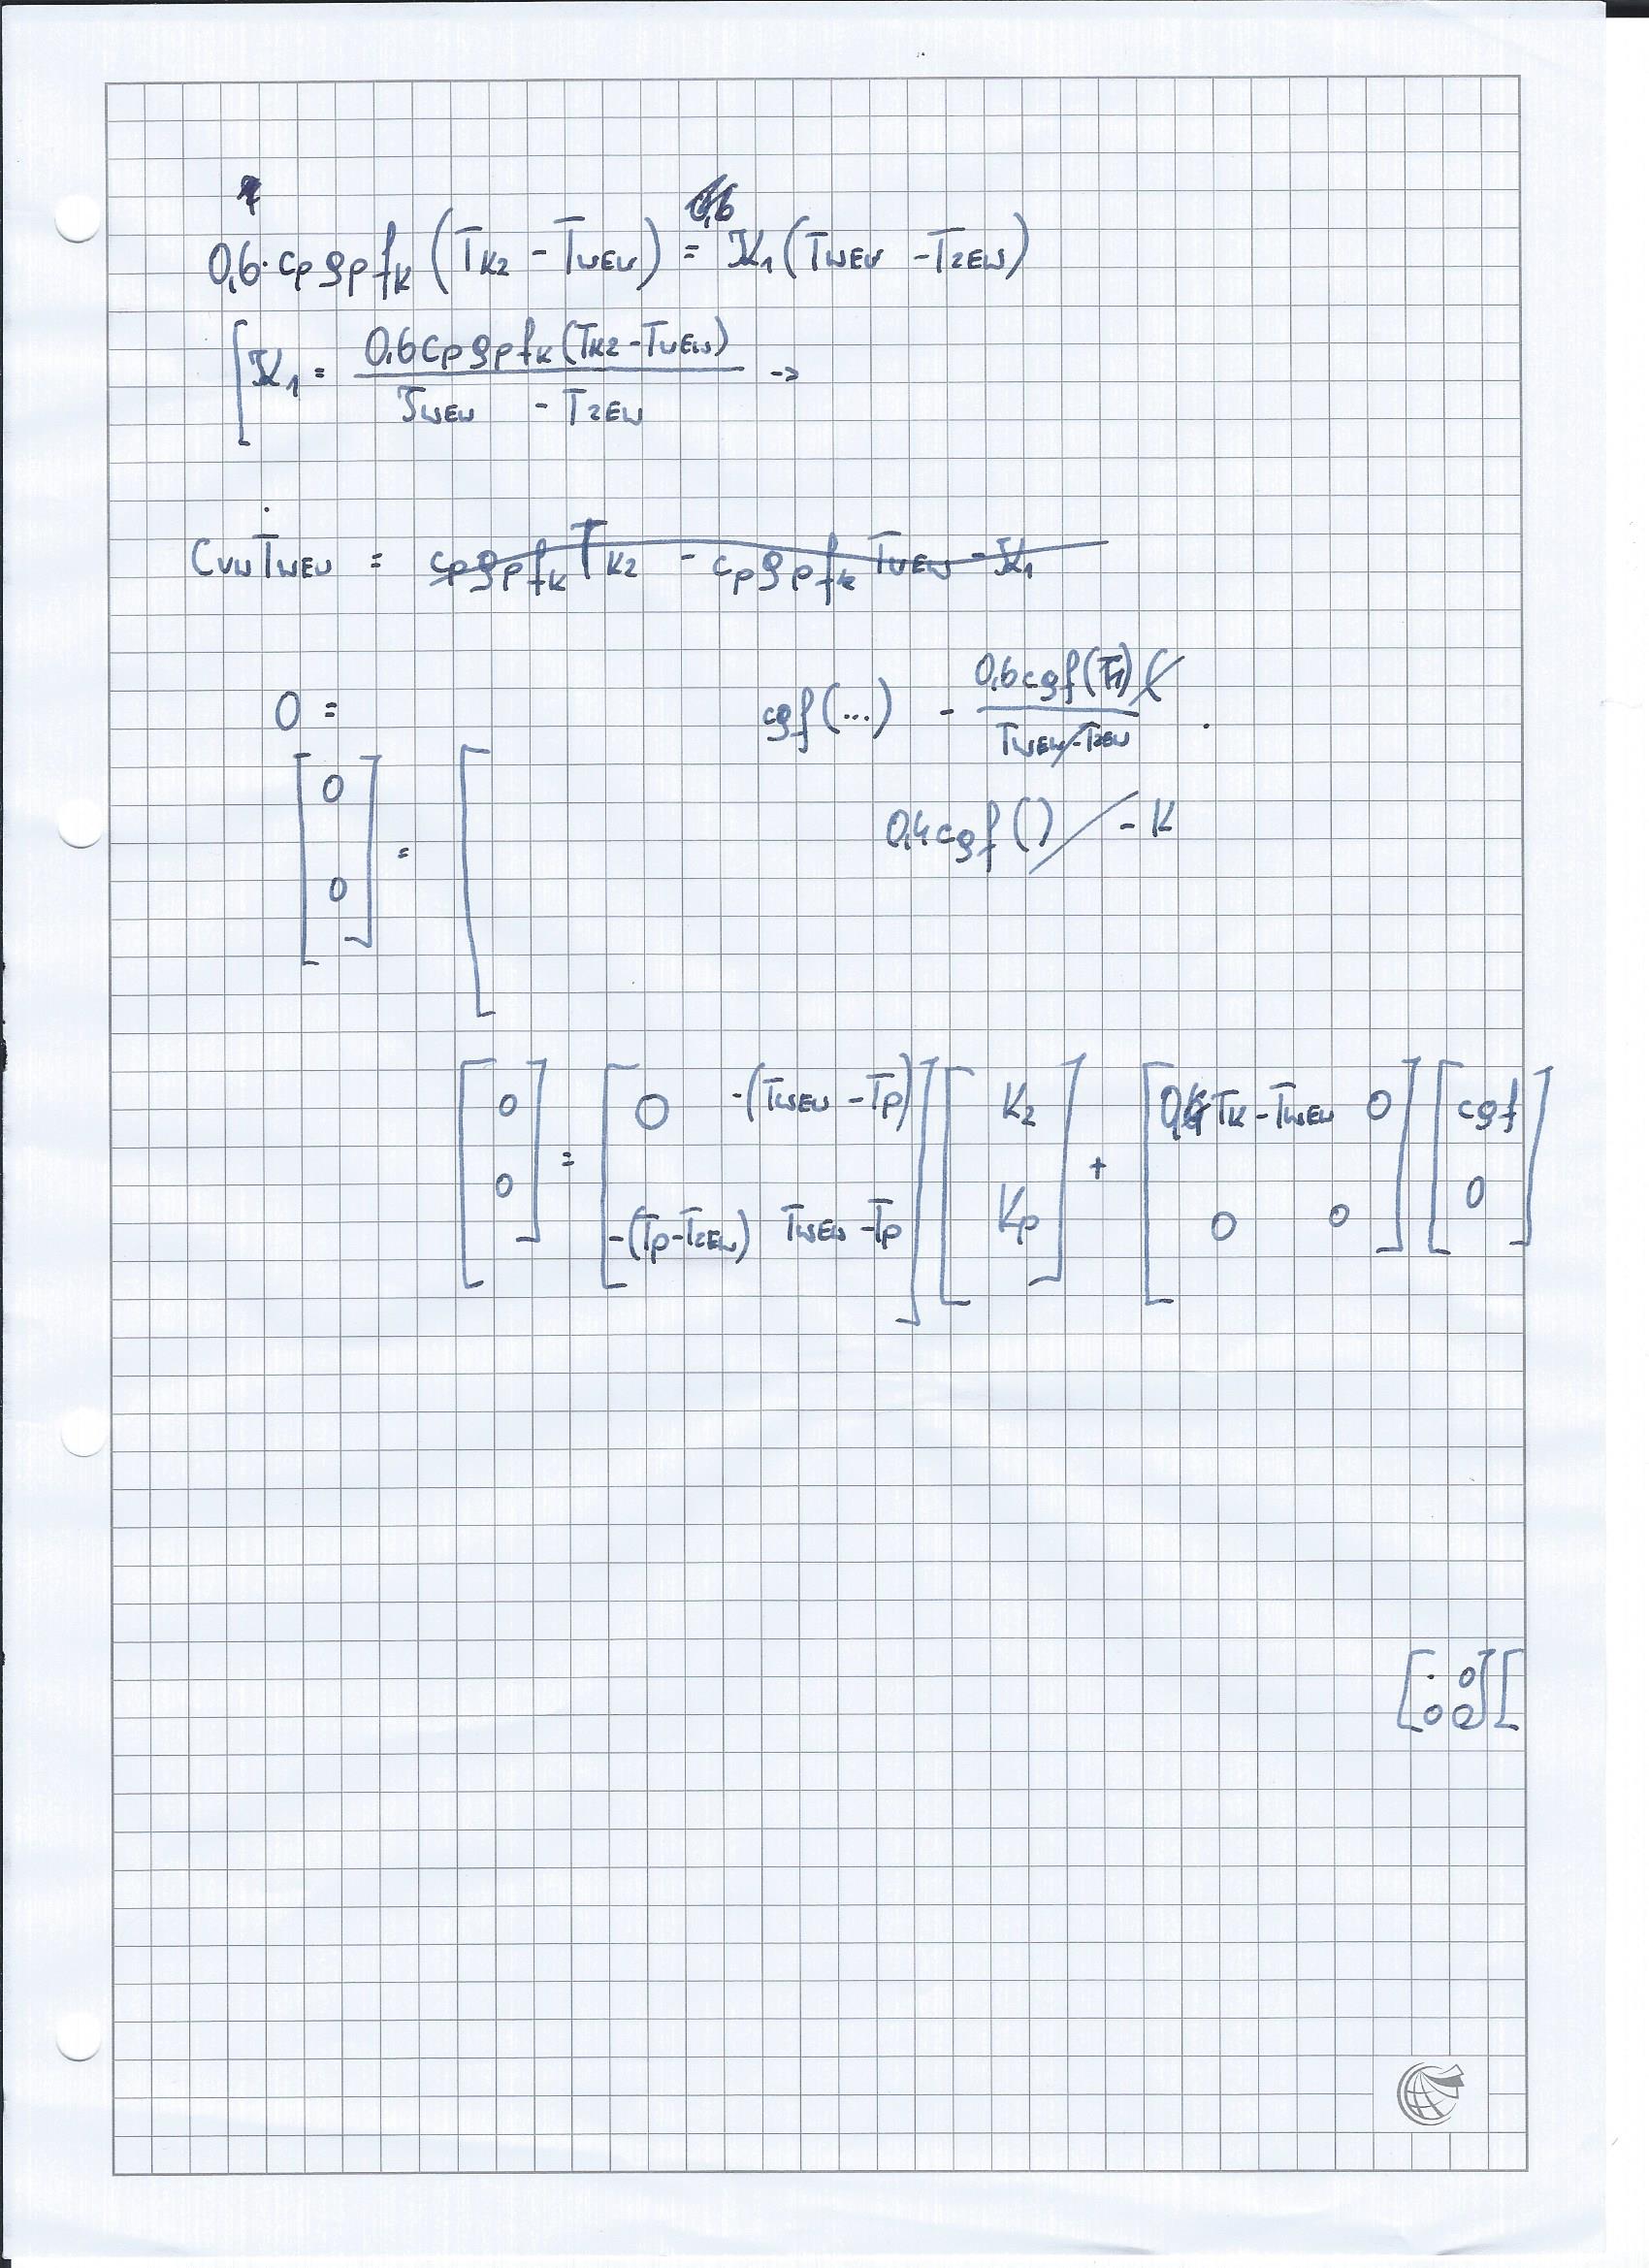 0,6·cpρpfk(TK2 - TWEW) = K1(TWEW - TZEW)
K1 = 0,6cpρpfk(TK2 - TWEW) / TWEW - TZEW →
CVW ṪWEW = cpρpfkTK2 - cpρpfkTWEW - K1
0 = cρf(...) - 0,6cρf( ) / TWEW - TZEW
[0 0] = [
0,4cρf() - K
[0 0] = [0 -(TWEW - TP) -(TP - TZEW) TWEW - TP] [K2 KP] + [0,4TK - TWEW 0 0 0] [cρf 0]
[· 0 0 0] [